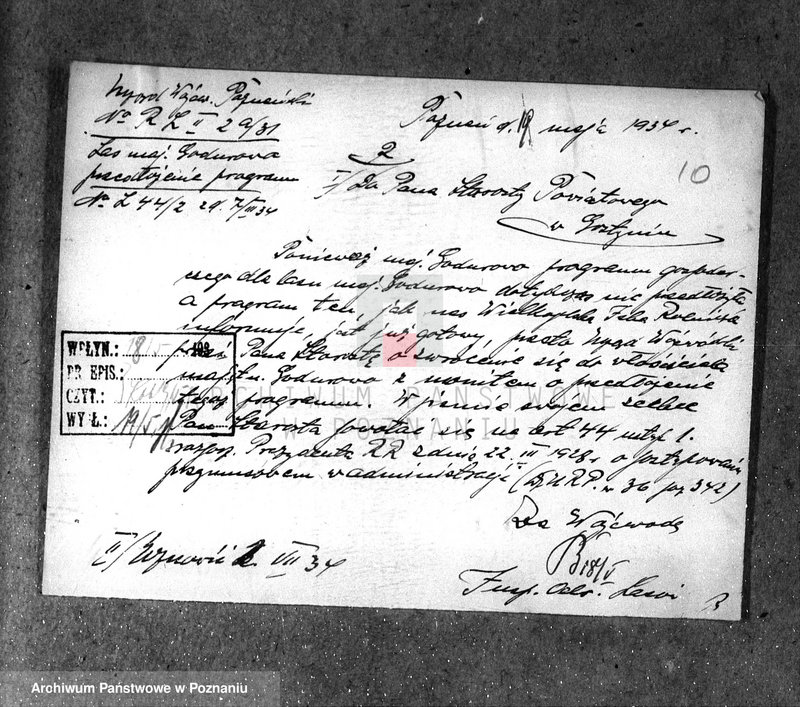 Urząd Wojew. Poznański
No R L II 2 a/31
Las maj. Godurowo
przedłożenie programu
No L 44/2 z d. 7/III 34
Poznań d. 18 maja 1934 r.
10
2
I/ Do Pana Starosty Powiatowego
w Gostyniu
Ponieważ maj. Godurowo programu gospodar-
czego dla lasu maj. Godurowo dotychczas nie przedłożyło
a program ten, jak nas Wielkopolska Izba Rolnicza
informuje, jest już gotowy, przeto Urząd Wojewódzki
prosi Pana Starostę o zwrócenie się do właściciela
majątn. Godurowo z monitem o przedłożenie
tegoż programu. W piśmie swojem zechce
Pan Starosta powołać się na art 44 ustęp 1.
rozp. Prezydenta RP z dnia 22. III 1928 r. o postępowaniu
przymusowem w administracji (Dz U R P. nr 36 poz 342)
Za Wojewodę
18/V
Insp. Ochr. Lasów
II/ Wznowić 1 VII 34
WPŁYN.: 18/5 193
PR EPIS.:
CZYT.:
WYSŁ.: 19/5
ARCHIWUM PAŃSTWOWE
W POZNANIU
Archiwum Państwowe w Poznaniu